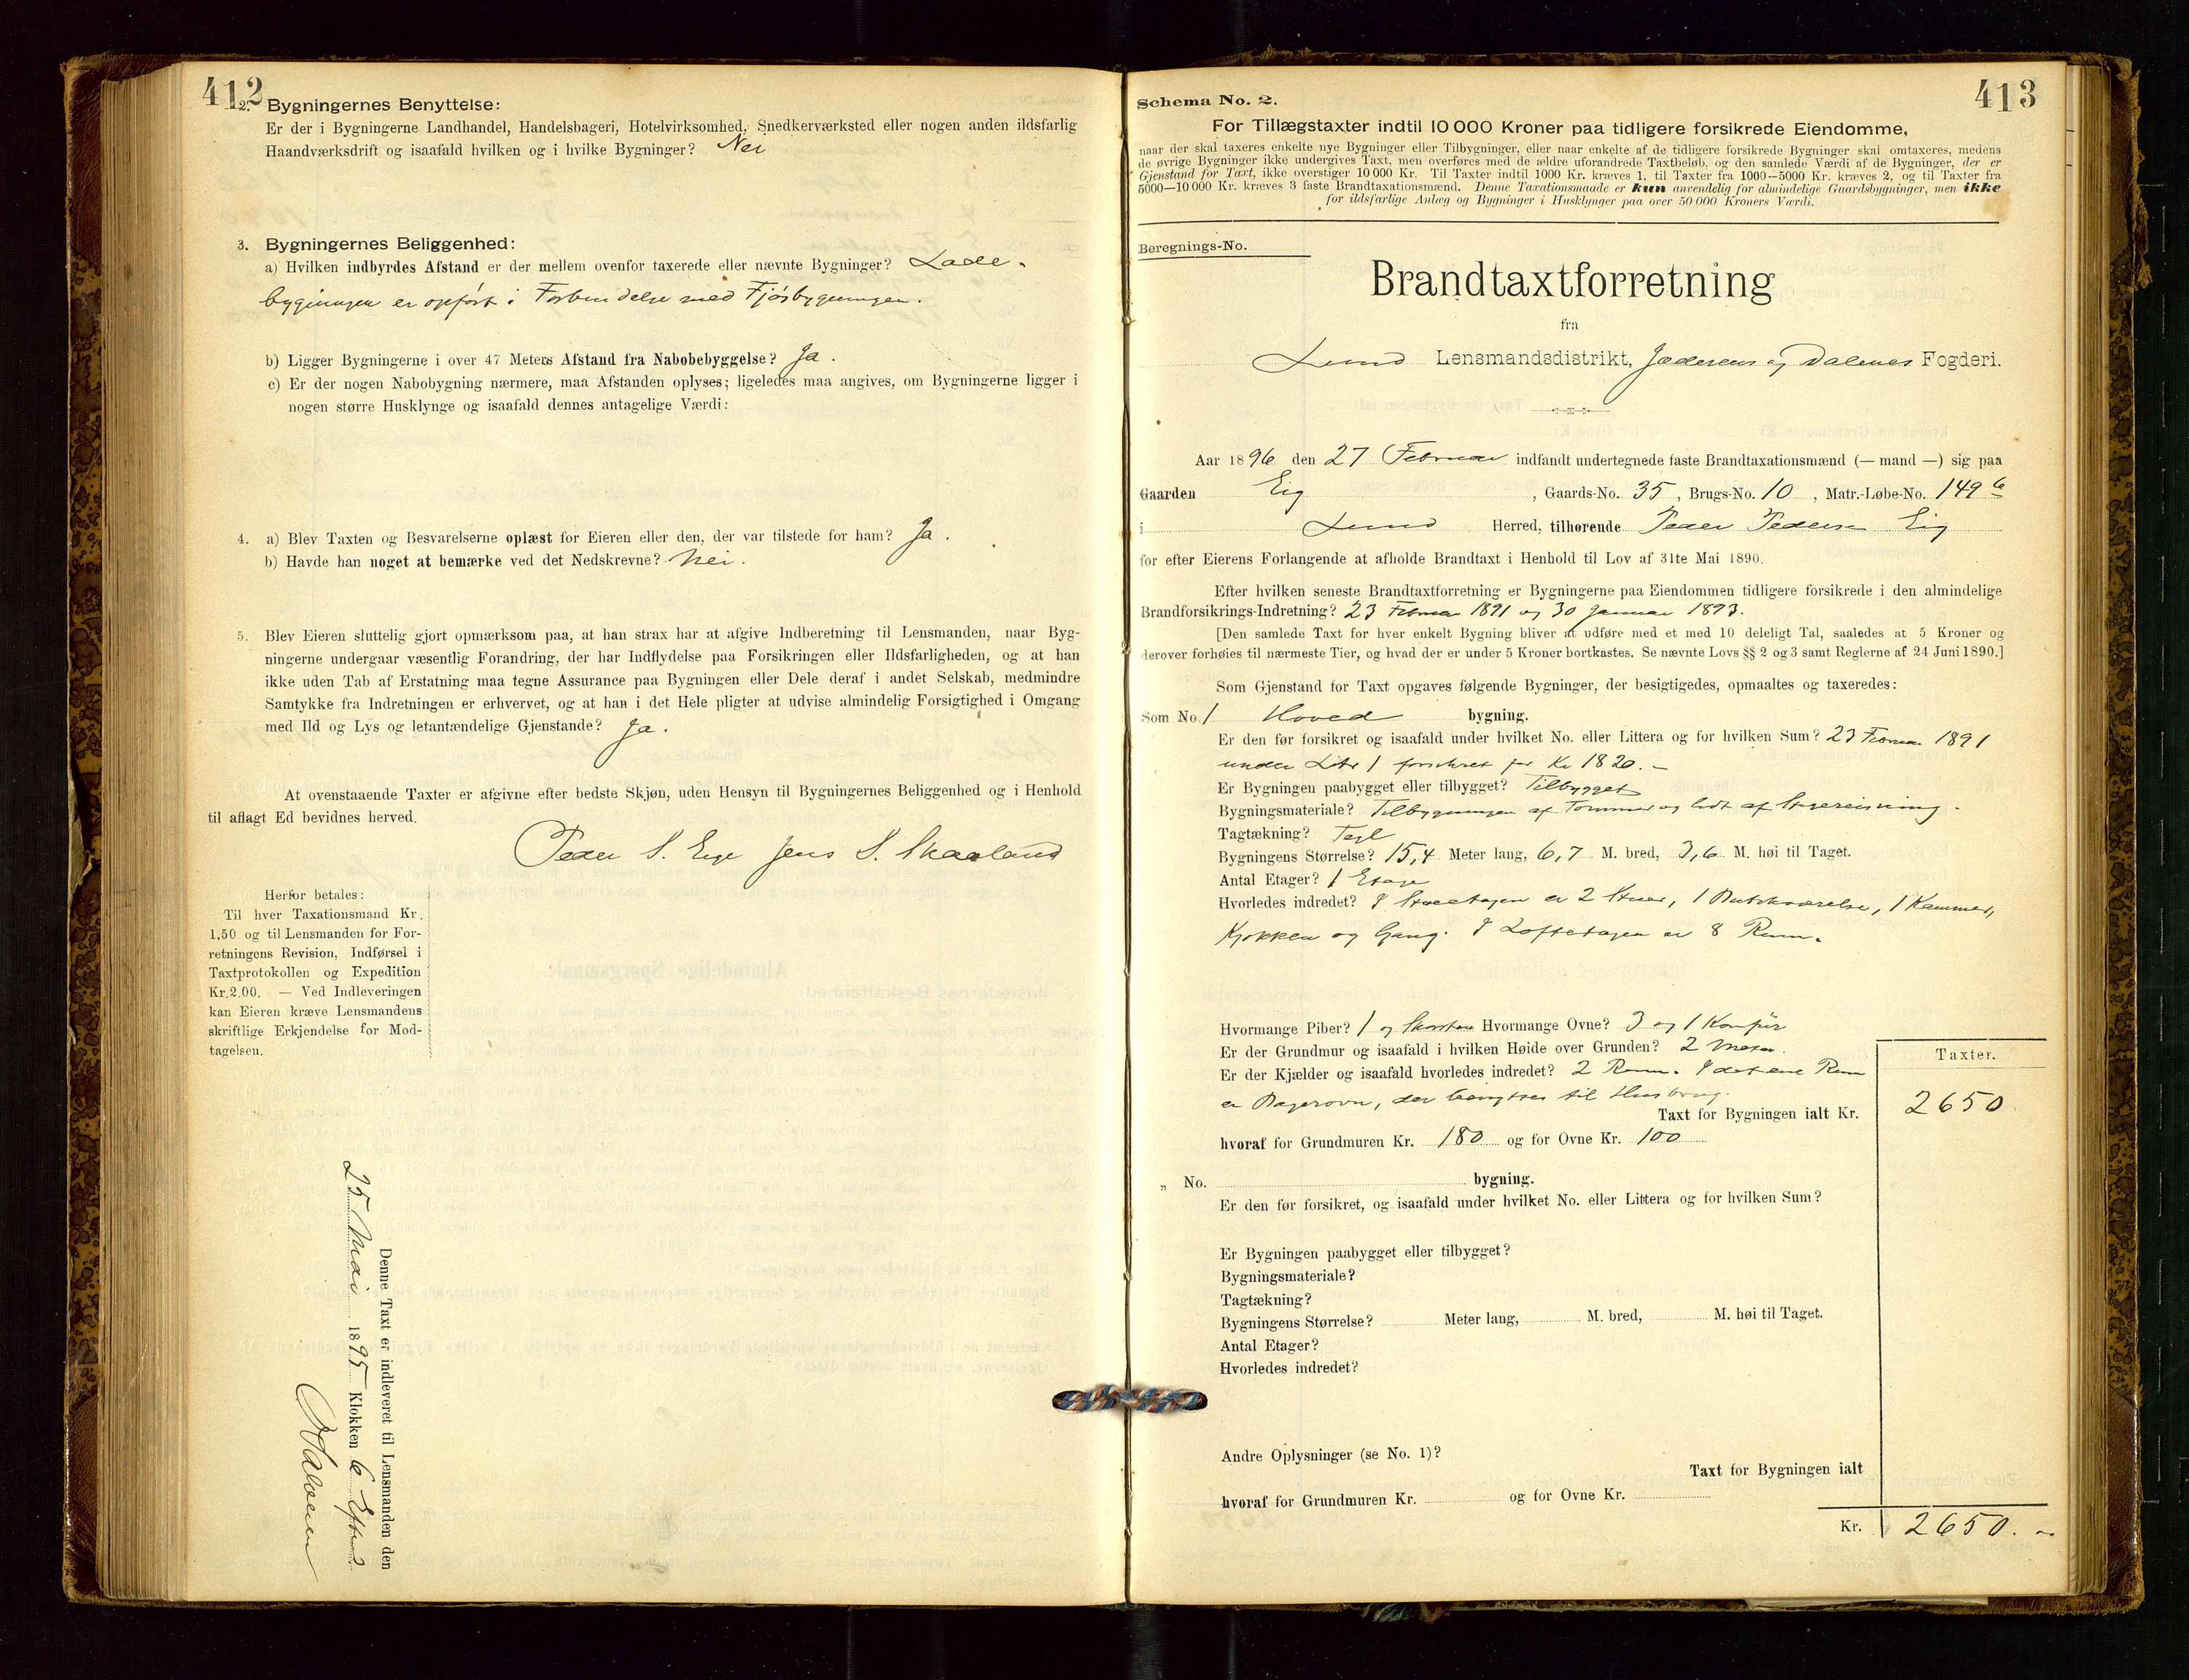 412
2. Bygningernes Benyttelse:
Er der i Bygningerne Landhandel, Handelsbageri, Hotelvirksomhed, Snedkerværksted eller nogen anden ildsfarlig
Haandværksdrift og isaafald hvilken og i hvilke Bygninger? Nei
3. Bygningernes Beliggenhed:
a) Hvilken indbyrdes Afstand er der mellem ovenfor taxerede eller nævnte Bygninger? Lade-
bygningen er opført i Forbindelse med Fjøsbygningen.
b) Ligger Bygningerne i over 47 Meters Afstand fra Nabobebyggelse? Ja.
c) Er der nogen Nabobygning nærmere, maa Afstanden oplyses; ligeledes maa angives, om Bygningerne ligger i
nogen større Husklynge og isaafald dennes antagelige Værdi:
4. a) Blev Taxten og Besvarelserne oplæst for Eieren eller den, der var tilstede for ham? Ja.
b) Havde han noget at bemærke ved det Nedskrevne? Nei.
5. Blev Eieren sluttelig gjort opmærksom paa, at han strax har at afgive Indberetning til Lensmanden, naar Byg-
ningerne undergaar væsentlig Forandring, der har Indflydelse paa Forsikringen eller Ildsfarligheden, og at han
ikke uden Tab af Erstatning maa tegne Assurance paa Bygningen eller Dele deraf i andet Selskab, medmindre
Samtykke fra Indretningen er erhvervet, og at han i det Hele pligter at udvise almindelig Forsigtighed i Omgang
med Ild og Lys og letantændelige Gjenstande? Ja.
At ovenstaaende Taxter er afgivne efter bedste Skjøn, uden Hensyn til Bygningernes Beliggenhed og i Henhold
til aflagt Ed bevidnes herved.
Peder S. Eige Jens S. Skaaland
Herfor betales:
Til hver Taxationsmand Kr.
1.50 og til Lensmanden for For-
retningens Revision, Indførsel i
Taxtprotokollen og Expedition
Kr. 2.00. — Ved Indleveringen
kan Eieren kræve Lensmandens
skriftlige Erkjendelse for Mod-
tagelsen.
Denne Taxt er indleveret til Lensmanden den
25 Mai 1895 Klokken 6 Efterm.
413
Schema No. 2.
For Tillægstaxter indtil 10 000 Kroner paa tidligere forsikrede Eiendomme,
naar der skal taxeres enkelte nye Bygninger eller Tilbygninger, eller naar enkelte af de tidligere forsikrede Bygninger skal omtaxeres, medens
de øvrige Bygninger ikke undergives Taxt, men overføres med de ældre uforandrede Taxtbeløb, og den samlede Værdi af de Bygninger, der er
Gjenstand for Taxt, ikke overstiger 10 000 Kr. Til Taxter indtil 1000 Kr. kræves 1, til Taxter fra 1000—5000 Kr. kræves 2, og til Taxter fra
5000—10 000 Kr. kræves 3 faste Brandtaxationsmænd. Denne Taxationsmaade er kun anvendelig for almindelige Gaardsbygninger, men ikke
for ildsfarlige Anlæg og Bygninger i Husklynger paa over 50 000 Kroners Værdi.
Beregnings-No.
Brandtaxtforretning
fra
Lund Lensmandsdistrikt, Jæderens og Dalenes Fogderi.
Aar 1896 den 27 Februar indfandt undertegnede faste Brandtaxationsmænd (— mand —) sig paa
Gaarden Eig, Gaards-No. 35, Brugs-No. 10, Matr.-Løbe-No. 149 b
i Lund Herred, tilhørende Peder Pedersen Eig
for efter Eierens Forlangende at afholde Brandtaxt i Henhold til Lov af 31te Mai 1890.
Efter hvilken seneste Brandtaxtforretning er Bygningerne paa Eiendommen tidligere forsikrede i den almindelige
Brandforsikrings-Indretning? 23 Februar 1891 og 30 Januar 1893.
[Den samlede Taxt for hver enkelt Bygning bliver at udføre med et med 10 deleligt Tal, saaledes at 5 Kroner og
derover forhøies til nærmeste Tier, og hvad der er under 5 Kroner bortkastes. Se nævnte Lovs §§ 2 og 3 samt Reglerne af 24 Juni 1890.]
Som Gjenstand for Taxt opgaves følgende Bygninger, der besigtigedes, opmaaltes og taxeredes:
Som No. 1 Hoved bygning.
Er den før forsikret og isaafald under hvilket No. eller Littera og for hvilken Sum? 23 Februar 1891
under Litr 1 forsikret for Kr 1820.-
Er Bygningen paabygget eller tilbygget? Tilbygget
Bygningsmateriale? Tilbygningen af Tømmer og lidt af
Tagtækning? Tegl
Bygningens Størrelse? 15,4 Meter lang, 6,7 M. bred, 3,6 M. høi til Taget.
Antal Etager? 1 Etage
Hvorledes indredet? I Stueetagen er 2 Stuer, 1 , 1 Kammer,
Kjøkken og Gang. I Loftetagen er 8 Rum.
Hvormange Piber? 1 og Skorsten Hvormange Ovne? 3 og 1 Komfür
Er der Grundmur og isaafald i hvilken Høide over Grunden? 2 Meter.
Er der Kjælder og isaafald hvorledes indredet? 2 Rum. I det ene Rum
er Bagerovn, der benyttes til Husbrug.
Taxter.
Taxt for Bygningen ialt Kr. 2650
hvoraf for Grundmuren Kr. 180 og for Ovne Kr. 100
„ No. bygning.
Er den før forsikret, og isaafald under hvilket No. eller Littera og for hvilken Sum?
Er Bygningen paabygget eller tilbygget?
Bygningsmateriale?
Tagtækning?
Bygningens Størrelse? Meter lang, M. bred, M. høi til Taget.
Antal Etager?
Hvorledes indredet?
Andre Oplysninger (se No. 1)?
Taxt for Bygningen ialt
hvoraf for Grundmuren Kr. og for Ovne Kr.
Kr. 2650.-